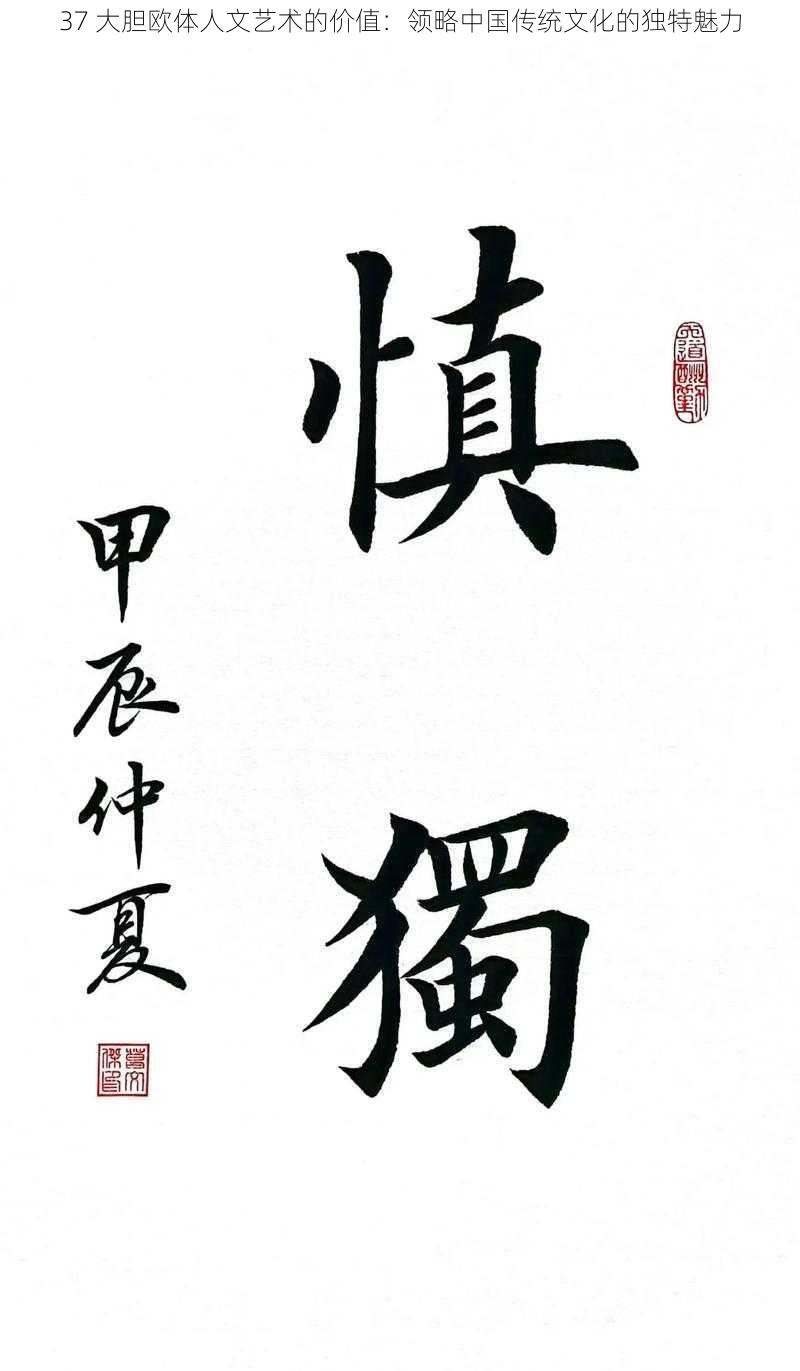 37 大胆欧体人文艺术的价值：领略中国传统文化的独特魅力
慎獨
甲辰仲夏